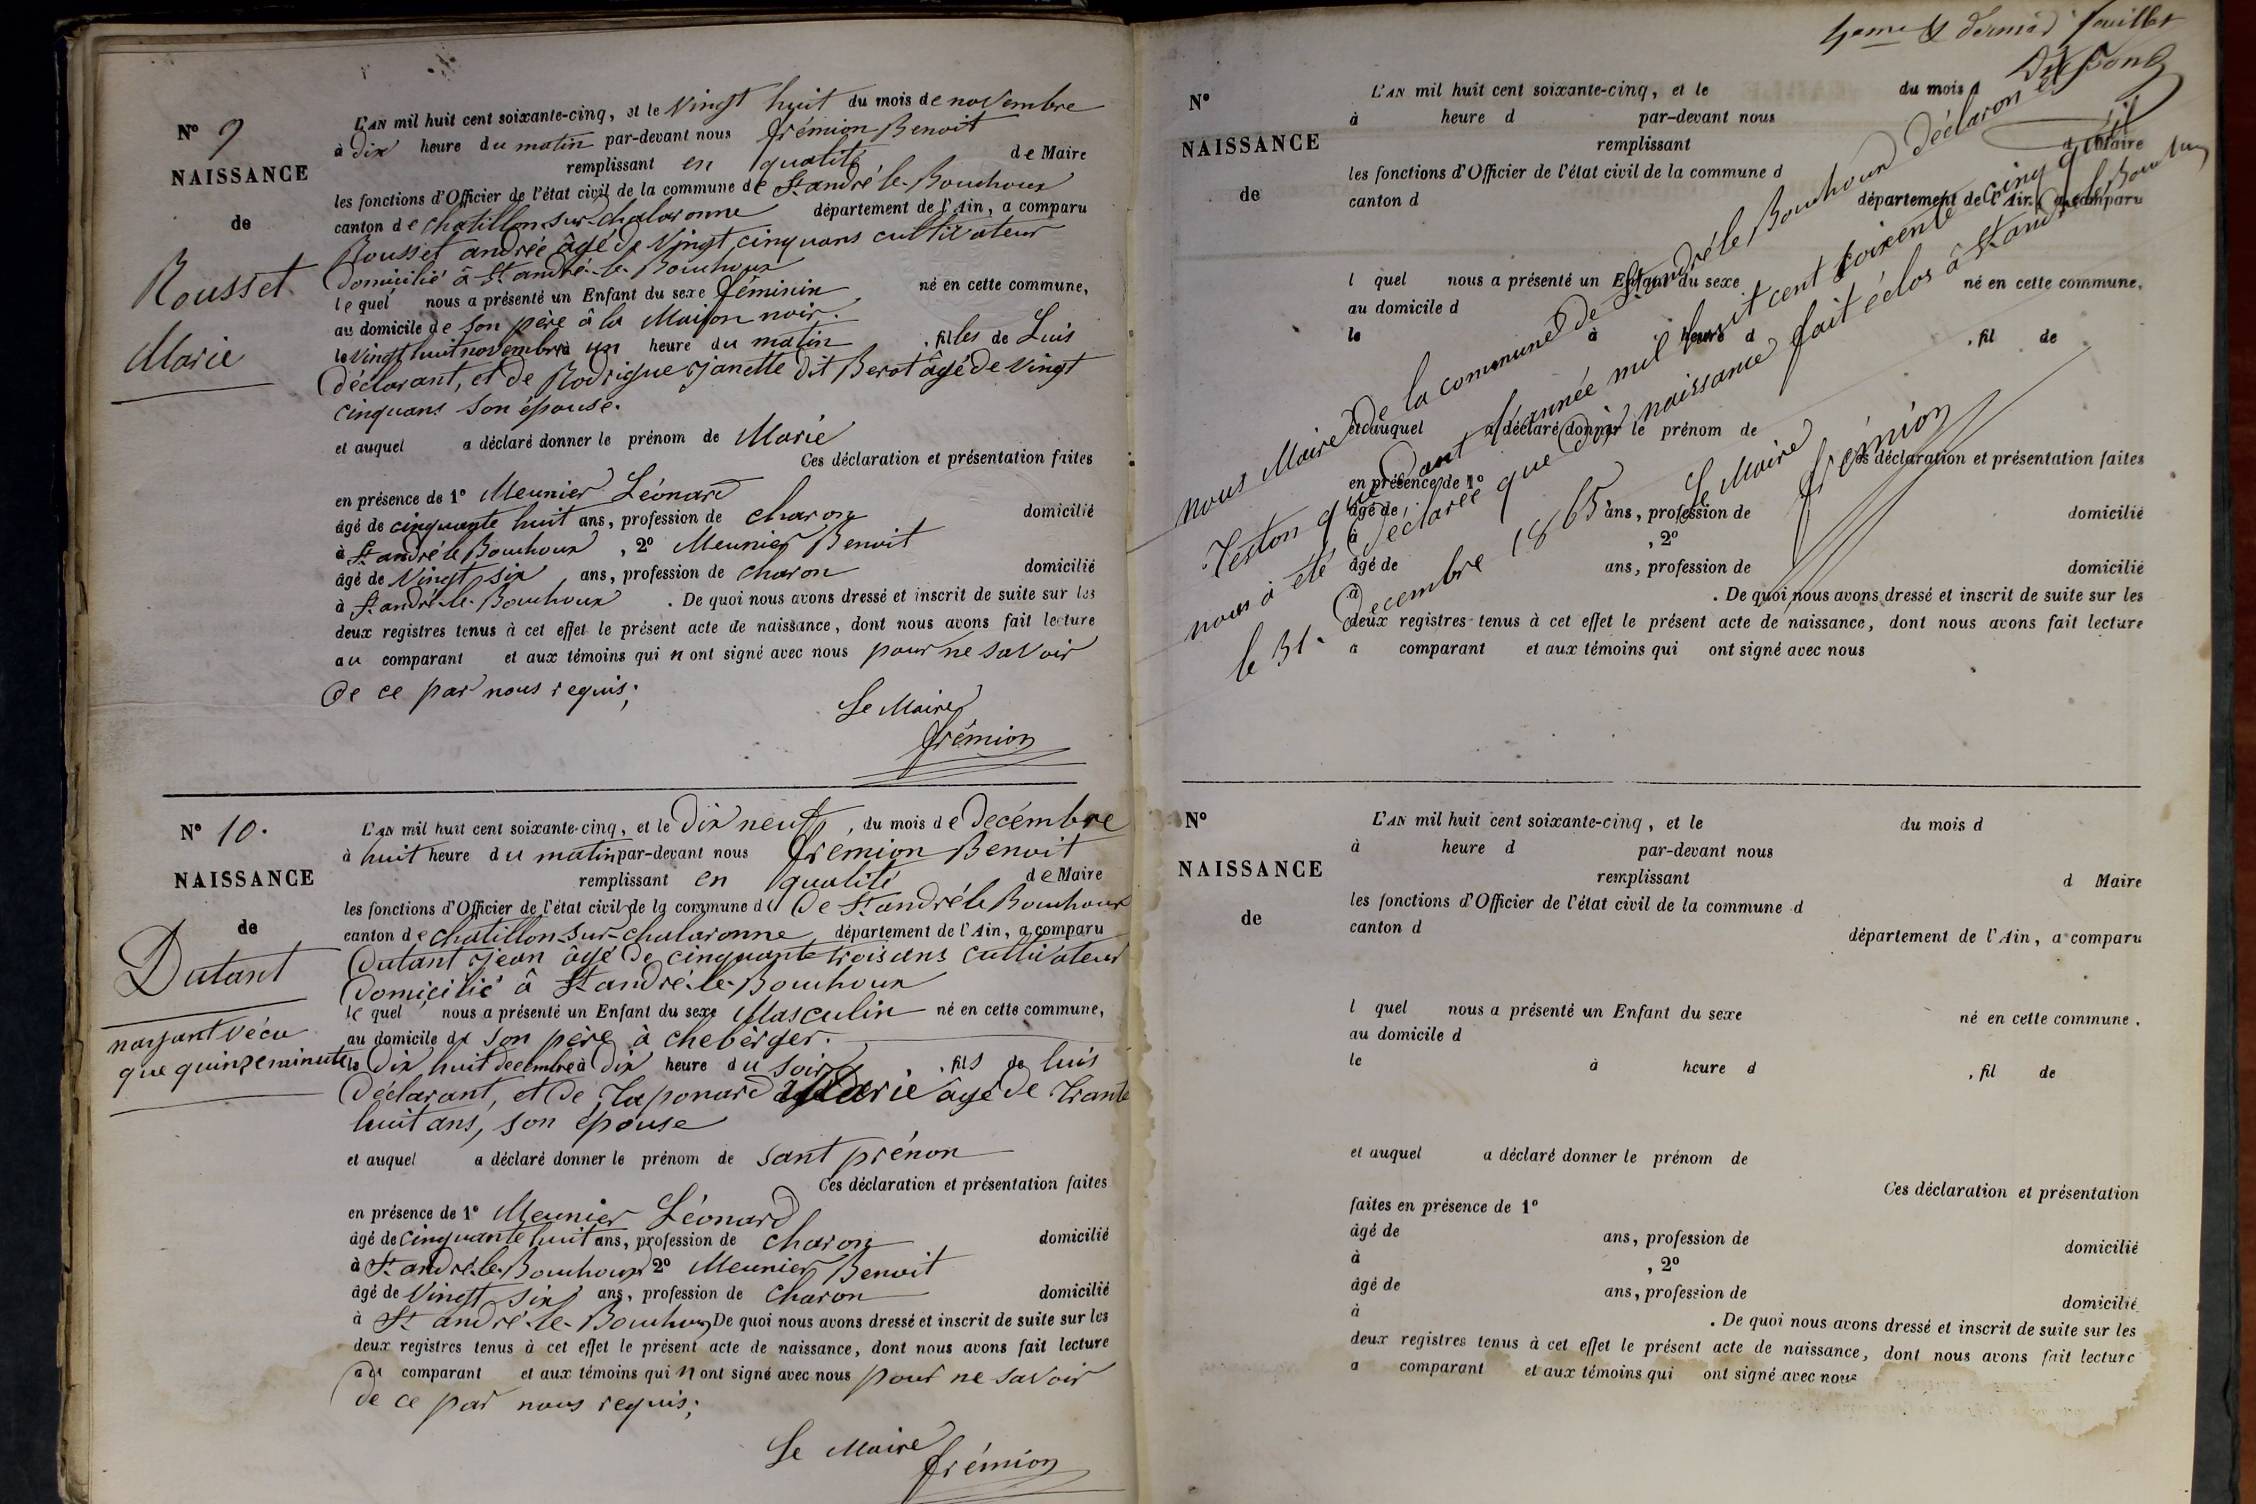 N° 9
NAISSANCE
de
Rousset
Marie
L'AN mil huit cent soixante-cinq, et le Vingt huit du mois de novembre
à dix heure du matin par-devant nous frémion Benoit
remplissant en qualité de Maire
les fonctions d'Officier de l'état civil de la commune de St andré-le-Bouchoux
canton de chatillon-sur-chalaronne département de l'Ain, a comparu
Rousset andrée âgé de Vingt cinquans cultivateur
domicilié â St andré-le-Bouchoux
le quel nous a présenté un Enfant du sexe féminin né en cette commune,
au domicile de son père â la Maison noir.
le Vingt huit novembre à un heure du matin, filles de Luis
déclarant, et de Rodrigue janette dit Berot âgé de Vingt
cinquans son épouse.
et auquel a déclaré donner le prénom de Marie
Ces déclaration et présentation faites
en présence de 1° Meunier Léonard
âgé de cinquante huit ans, profession de charon domicilié
à St andré le Bouchoux, 2° Meunier Benoit
âgé de Vingt six ans, profession de charon domicilié
à St andré-le-Bouchoux. De quoi nous avons dressé et inscrit de suite sur les
deux registres tenus à cet effet le présent acte de naissance, dont nous avons fait lecture
au comparant et aux témoins qui n ont signé avec nous pour ne savoir
de ce par nous requis;
Le Maire
frémion
N° 10.
NAISSANCE
de
Dutant
nayant Vécu
que quinze minute
L'AN mil huit cent soixante-cinq, et le Dix neuf, du mois de Decémbre
à huit heure du matin par-devant nous fremion Benoit
remplissant en qualité de Maire
les fonctions d'Officier de l'état civil de la commune d de St andré le Bouchoux
canton de chatillon-sur-chalaronne département de l'Ain, a comparu
Dutant jean âgé de cinquante trois ans cultivateur
domicilié â St andré-le-Bouchoux
le quel nous a présenté un Enfant du sexe Masculin né en cette commune,
au domicile de son père à cheberger.
le Dix huit decembre à dix heure du soir, fils de luis
déclarant, et de Taponard Marie âgé de Trante
huit ans, son épouse
et auquel a déclaré donner le prénom de sant prénon
Ces déclaration et présentation faites
en présence de 1° Meunier Léonard
âgé de cinquante huit ans, profession de charon domicilié
à St andré-le-Bouchoux 2° Meunier Benoit
âgé de Vingt six ans, profession de charon domicilié
à St andré-le-Bouchoux De quoi nous avons dressé et inscrit de suite sur les
deux registres tenus à cet effet le présent acte de naissance, dont nous avons fait lecture
au comparant et aux témoins qui n ont signé avec nous pour ne savoir
de ce par nous requis;
Le Maire
frémion
& dernier feuillet
N°
NAISSANCE
de
L'AN mil huit cent soixante-cinq, et le du mois d
à heure d par-devant nous
remplissant d Maire
les fonctions d'Officier de l'état civil de la commune d
canton d département de l'Ain, a comparu
l quel nous a présenté un Enfant du sexe né en cette commune,
au domicile d
le à heure d, fil de
et auquel a déclaré donner le prénom de
Ces déclaration et présentation faites
en présence de 1°
âgé de ans, profession de domicilié
à, 2°
âgé de ans, profession de domicilié
à. De quoi nous avons dressé et inscrit de suite sur les
deux registres tenus à cet effet le présent acte de naissance, dont nous avons fait lecture
a comparant et aux témoins qui ont signé avec nous
nous Maire de la commune de St andré le Bouchoux déclaron et
Teston que dant l'année mil huit cent soixente cinq qu'il
nous à été déclaree que dix naissance fait éclos â St andré le Bouchoux
le 31. Decembre 1865. Le Maire
frémion
N°
NAISSANCE
de
L'AN mil huit cent soixante-cinq, et le du mois d
à heure d par-devant nous
remplissant d Maire
les fonctions d'Officier de l'état civil de la commune d
canton d
département de l'Ain, a comparu
l quel nous a présenté un Enfant du sexe né en cette commune.
au domicile d
le à heure d, fil de
et auquel a déclaré donner le prénom de
Ces déclaration et présentation
faites en présence de 1°
âgé de ans, profession de domicilié
à, 2°
âgé de ans, profession de domicilié
à. De quoi nous avons dressé et inscrit de suite sur les
deux registres tenus à cet effet le présent acte de naissance, dont nous avons fait lecture
a comparant et aux témoins qui ont signé avec nous